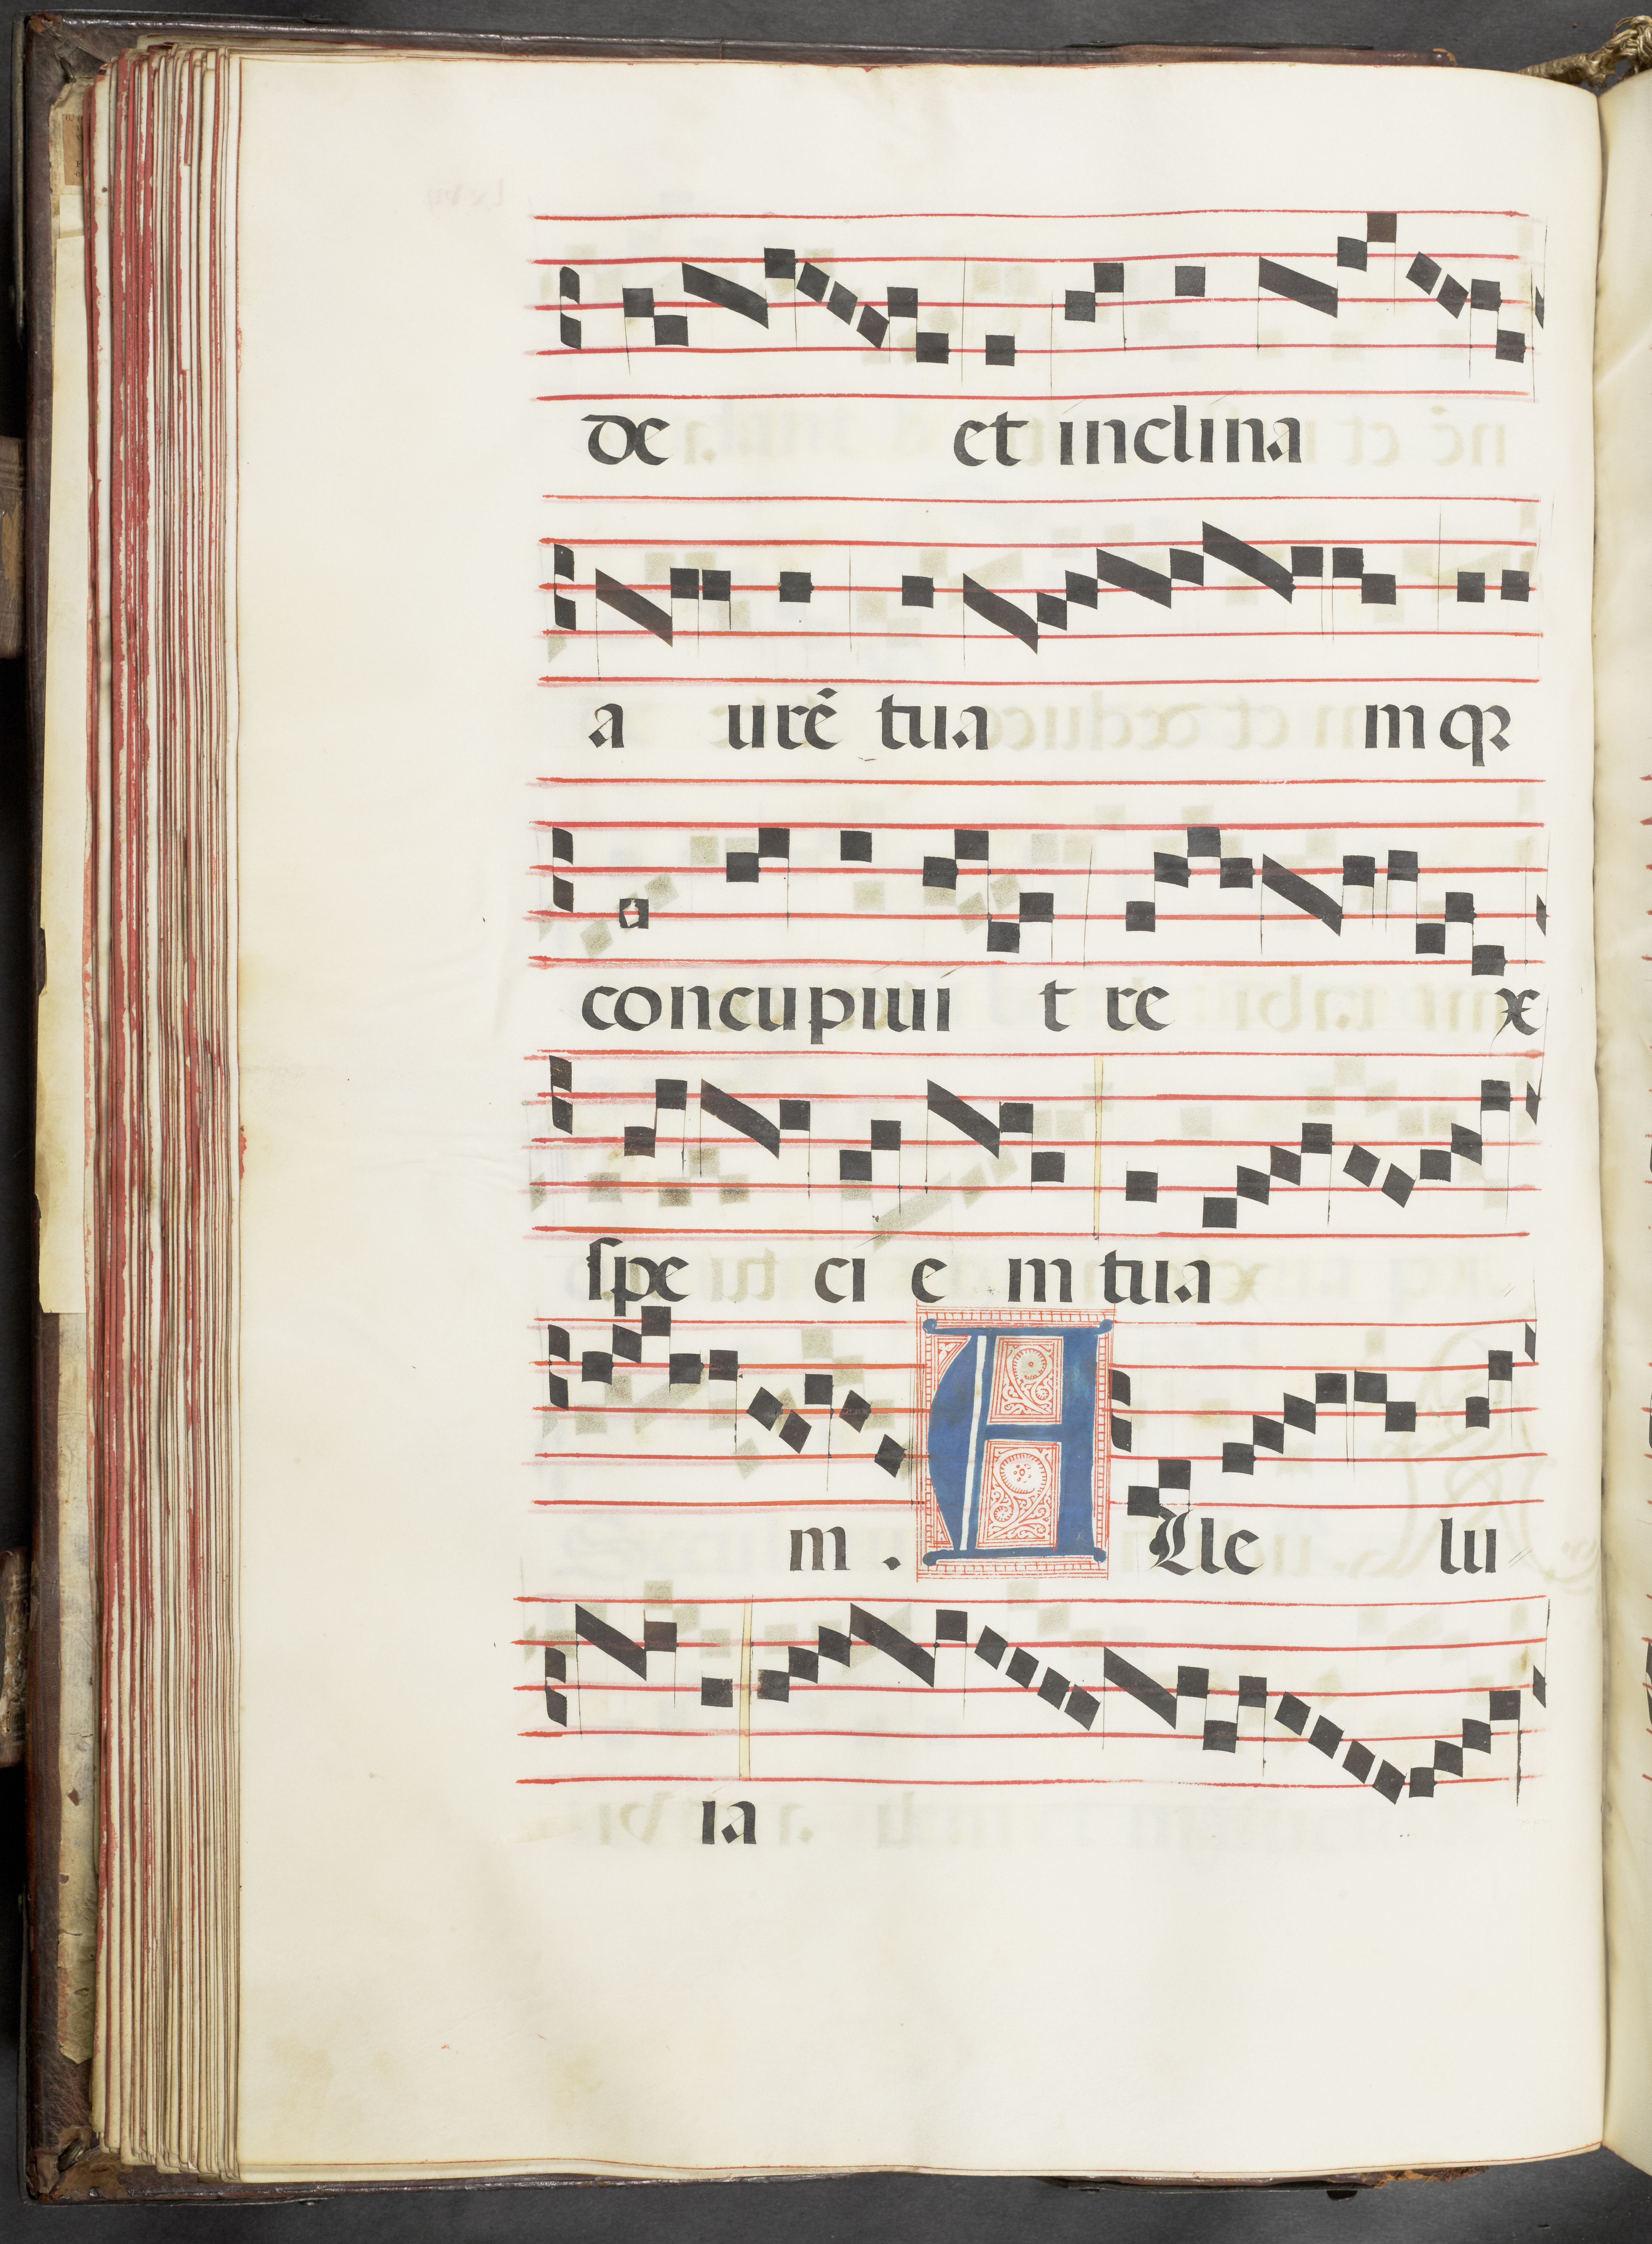 de et inclina
a urē tua m qꝛ
concupiui t re x
spe ci e m tua
m . Alle lu
ia